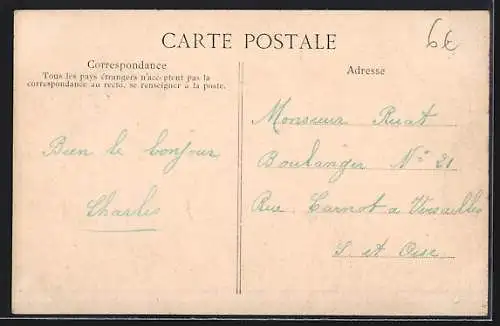 CARTE POSTALE
6€
Correspondance
Tous les pays étrangers n'acceptent pas la
correspondance au recto, se renseigner à la poste.
Adresse
Bien le bonjour
Charles
Monsieur Ruat
Boulanger N° 21
Rue Carnot a Versailles
S. et Oise